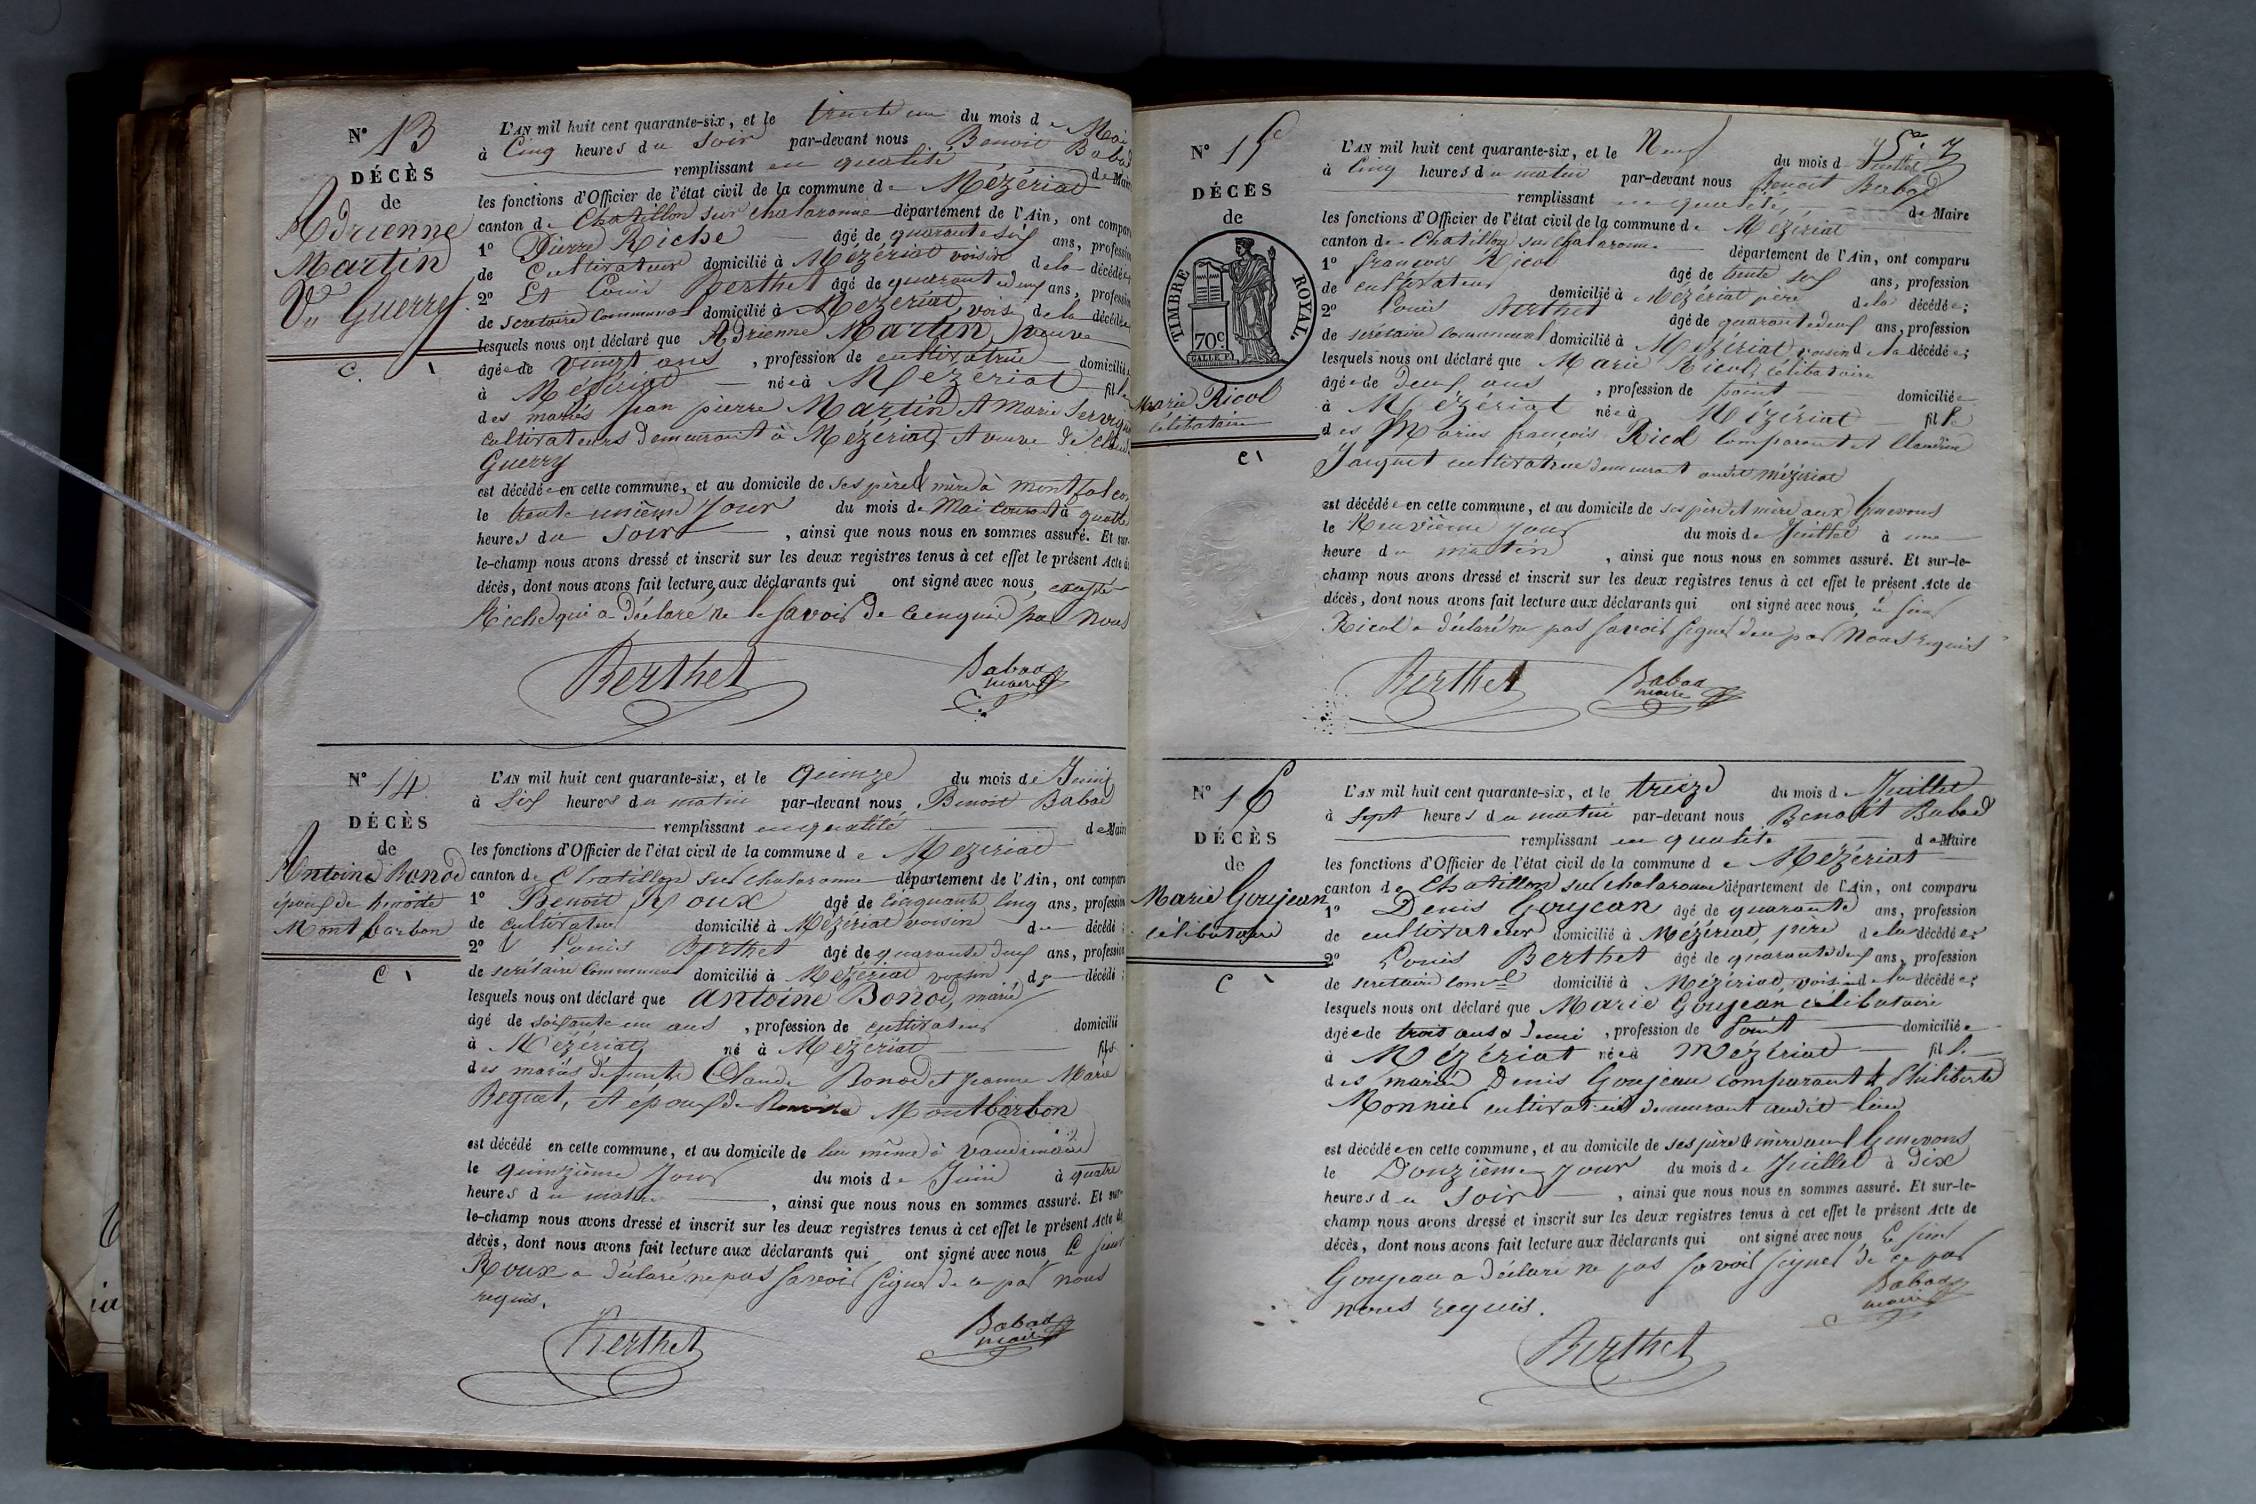 N° 13
DÉCÈS
de
Adrienne
Martin
Vve Guerry
C.
L'AN mil huit cent quarante-six, et le trente un du mois de Mai
à Cinq heures du soir par-devant nous Benoit Babad
remplissant en qualité de Maire
les fonctions d'Officier de l'état civil de la commune de Mézériat
canton de Chatillon sur chalaronne département de l'Ain, ont comparu
1° Pierre Riche âgé de quarante six ans, profession
de Cultivateur domicilié à Mézériat voisin de la décédée
2° Et Louis Berthet âgé de quarante deux ans, profession
de Secretaire Communal domicilié à Mézériat, voisin de la décédée
lesquels nous ont déclaré que Adrienne Martin, veuve
âgée de vingt ans, profession de cultivatrice domiciliée
à Mézériat née à Mézériat fille
des mariés Jean pierre Martin et Marie
cultivateurs demeurant à Mézériat, et veuve de Claude
Guerry
est décédée en cette commune, et au domicile de ses père et mère à montfalcon
le trente unième jour du mois de Mai courant à quatre
heures du soir, ainsi que nous nous en sommes assuré. Et sur-
le-champ nous avons dressé et inscrit sur les deux registres tenus à cet effet le présent Acte de
décès, dont nous avons fait lecture aux déclarants qui ont signé avec nous, excepté
Riche qui a déclaré ne le savoir de ce requis par nous
Berthet
Babad
maire
N° 14
DÉCÈS
de
Antoine Bonod
époux de benoite
Montbarbon
C
L'AN mil huit cent quarante-six, et le quinze du mois de Juin
à Six heures du matin par-devant nous Benoit Babad
remplissant en qualité de Maire
les fonctions d'Officier de l'état civil de la commune de Mézériat
canton de Chatillon sur chalaronne département de l'Ain, ont comparu
1° Benoit Roux âgé de cinquante cinq ans, profession
de cultivateur domicilié à Mézériat voisin du décédé;
2° Louis Berthet âgé de quarante deux ans, profession
de secrétaire Communal domicilié à Mézériat voisin du décédé;
lesquels nous ont déclaré que Antoine Bonod, marié
âgé de soixante un ans, profession de cultivateur domicilié
à Mézériat né à Mézériat fils
des mariés défunts Claude Bonod et Jeanne Marie
Beguet, et époux de Benoite Montbarbon
est décédé en cette commune, et au domicile de lui même à
le quinzième jour du mois de Juin à quatre
heures du matin, ainsi que nous nous en sommes assuré. Et sur-
le-champ nous avons dressé et inscrit sur les deux registres tenus à cet effet le présent Acte de
décès, dont nous avons fait lecture aux déclarants qui ont signé avec nous, le sieur
Roux a déclaré ne pas savoir signer de ce par nous
requis.
Berthet
Babad
maire
N° 15
DÉCÈS
de
TIMBRE ROYAL.
70c
Marie Ricol
célibataire
C
L'AN mil huit cent quarante-six, et le Neuf du mois de Juillet
à Cinq heures du matin par-devant nous Benoit Babad
remplissant en qualité de Maire
les fonctions d'Officier de l'état civil de la commune de Mézériat
canton de Chatillon sur chalaronne département de l'Ain, ont comparu
1° françois Ricol âgé de trente six ans, profession
de cultivateur domicilié à Mézériat père de la décédée;
2° Louis Berthet âgé de quarante deux ans, profession
de secrétaire communal domicilié à Mézériat voisin de la décédée;
lesquels nous ont déclaré que Marie Ricol, célibataire
âgée de deux ans, profession de point domiciliée
à Mézériat née à Mézériat fille
des Mariés françois Ricol Comparant et Claudine
Jacquet cultivateurs demeurant audit mézériat
est décédée en cette commune, et au domicile de ses père et mère aux Genevons
le Neuvième jour du mois de Juillet à une
heure du matin, ainsi que nous nous en sommes assuré. Et sur-le-
champ nous avons dressé et inscrit sur les deux registres tenus à cet effet le présent Acte de
décès, dont nous avons fait lecture aux déclarants qui ont signé avec nous, le sieur
Ricol a déclaré ne pas savoir signer de ce par nous requis
Berthet
Babad
maire
N° 16
DÉCÈS
de
Marie Goujean
célibataire
C
L'AN mil huit cent quarante-six, et le treize du mois de Juillet
à sept heures du matin par-devant nous Benoit Babad
remplissant en qualité de Maire
les fonctions d'Officier de l'état civil de la commune de Mézériat
canton de Chatillon sur chalaronne département de l'Ain, ont comparu
1° Denis Goujean âgé de quarante ans, profession
de cultivateur domicilié à Mézériat, père de la décédée;
2° Louis Berthet âgé de quarante deux ans, profession
de secretaire comal domicilié à Mézériat, voisin de la décédée;
lesquels nous ont déclaré que Marie Goujean célibataire
âgée de trois ans & demi, profession de point domiciliée
à Mézériat née à Mézériat fille
des mariés Denis Goujean comparant et Philiberte
Monnier cultivateurs demeurant audit lieu
est décédée en cette commune, et au domicile de ses père et mère aux Genevons
le Douzième jour du mois de Juillet à Dix
heures du soir, ainsi que nous nous en sommes assuré. Et sur-le-
champ nous avons dressé et inscrit sur les deux registres tenus à cet effet le présent Acte de
décès, dont nous avons fait lecture aux déclarants qui ont signé avec nous, le sieur
Goujean a déclaré ne pas savoir signer de ce par
nous requis.
Babad
maire
Berthet